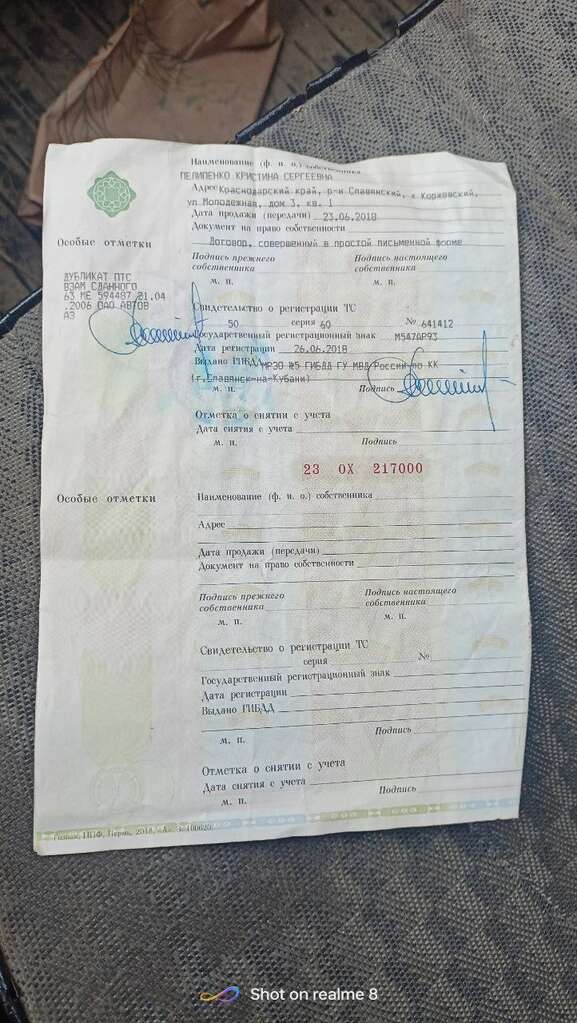 Наименование (ф. и. о.) собственника
ПЕЛИПЕНКО КРИСТИНА СЕРГЕЕВНА
Адрес Краснодарский край, р-н Славянский, х Коржевский,
ул Молодежная, дом 3, кв. 1
Дата продажи (передачи) 23.06.2018
Документ на право собственности
Договор, совершенный в простой письменной форме
Особые отметки
Подпись прежнего собственника
Подпись настоящего собственника
м. п.
м. п.
ДУБЛИКАТ ПТС
ВЗАМ СДАННОГО
63 МЕ 594487 21.04
.2006 ОАО АВТОВ
АЗ
Свидетельство о регистрации ТС
50 серия 60 № 641412
Государственный регистрационный знак М547АР93
Дата регистрации 26.06.2018
Выдано ГИБДД МРЭО №5 ГИБДД ГУ МВД России по КК
(г.Славянск-на-Кубани)
м. п.
Подпись
Отметка о снятии с учета
Дата снятия с учета
м. п.
Подпись
23 ОХ 217000
Особые отметки
Наименование (ф. и. о.) собственника
Адрес
Дата продажи (передачи)
Документ на право собственности
Подпись прежнего собственника
Подпись настоящего собственника
м. п.
м. п.
Свидетельство о регистрации ТС
серия №
Государственный регистрационный знак
Дата регистрации
Выдано ГИБДД
м. п.
Подпись
Отметка о снятии с учета
Дата снятия с учета
м. п.
Подпись
Гознак, ППФ, Пермь, 2018, «А».
Shot on realme 8